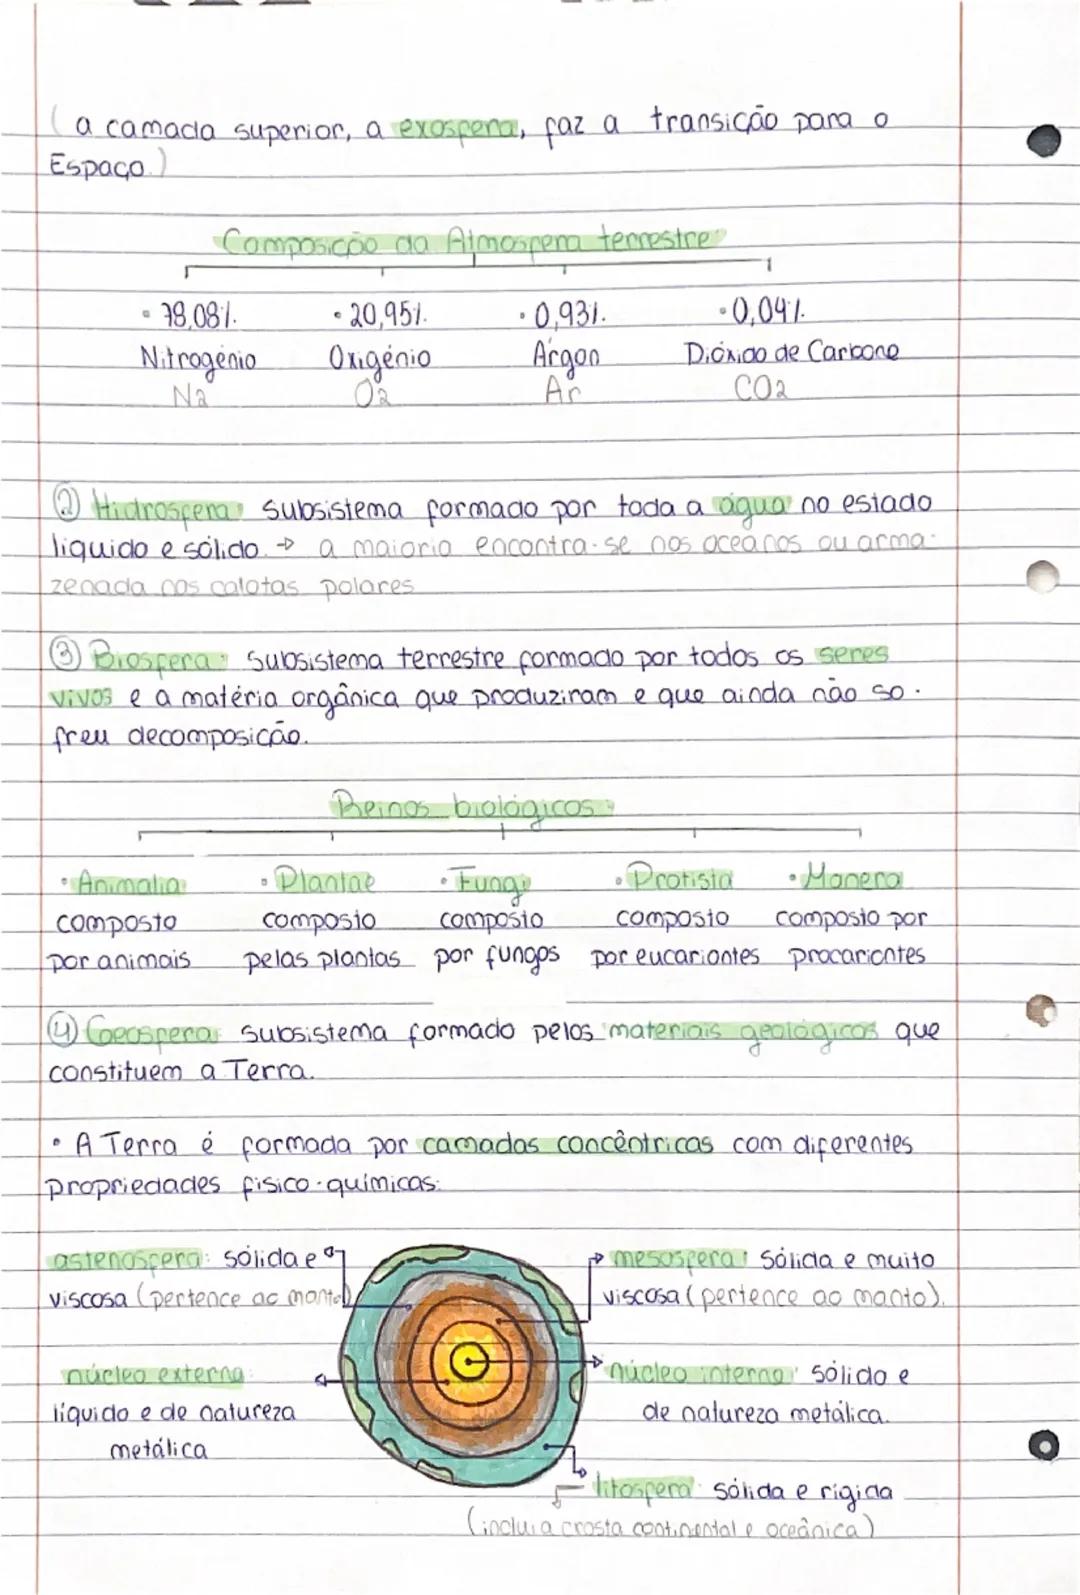 (a camada superior, a exosfera, faz a transição para o
Espaço.)
Composição da Atmosfera terrestre:
• 78,08%. • 20,95%. • 0,93%. • 0,04%.
Nitrogénio Oxigénio Árgon Dióxido de Carbono
N2 O2 Ar CO2
② Hidrosfera: subsistema formado por toda a água no estado
líquido e sólido. → a maioria encontra-se nos oceanos ou arma-
zenada nas calotas polares
③ Biosfera: subsistema terrestre formado por todos os seres
vivos e a matéria orgânica que produziram e que ainda não so-
freu decomposição.
Reinos biológicos:
• Animalia • Plantae • Fungi • Protista • Monera
composto composto composto composto composto por
por animais pelas plantas por fungos por eucariontes procariontes
④ Geosfera: subsistema formado pelos materiais geológicos que
constituem a Terra.
• A Terra é formada por camadas concêntricas com diferentes
propriedades físico-químicas:
astenosfera: sólida e
viscosa (pertence ao manto)
mesosfera: sólida e muito
viscosa (pertence ao manto).
núcleo externo:
líquido e de natureza
metálica
núcleo interno: sólido e
de natureza metálica.
litosfera: sólida e rígida
(inclui a crosta continental e oceânica)